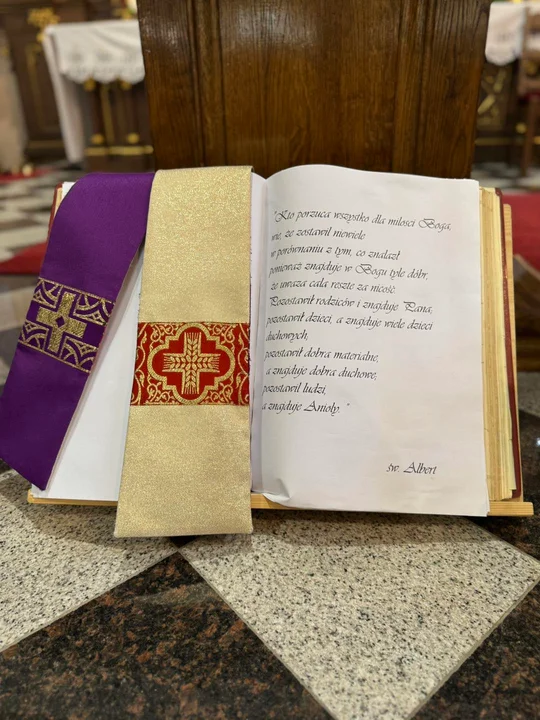 "Kto porzuca wszystko dla miłości Boga,
wie, że zostawił niewiele
w porównaniu z tym, co znalazł
ponieważ znajduje w Bogu tyle dóbr,
że uważa całą resztę za nicość.
Pozostawił rodziców i znajduje Pana,
pozostawił dzieci, a znajduje wiele dzieci
duchowych,
pozostawił dobra materialne,
a znajduje dobra duchowe,
pozostawił ludzi,
a znajduje Anioły."
św. Albert